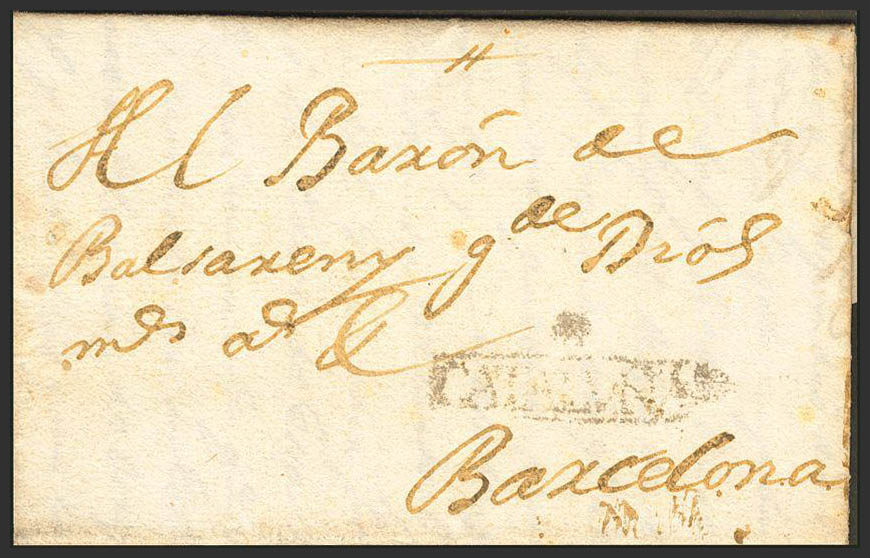 Al Baron de
Balsareny g.de Dios
m.s a.s &
CATALUÑA
Barcelona